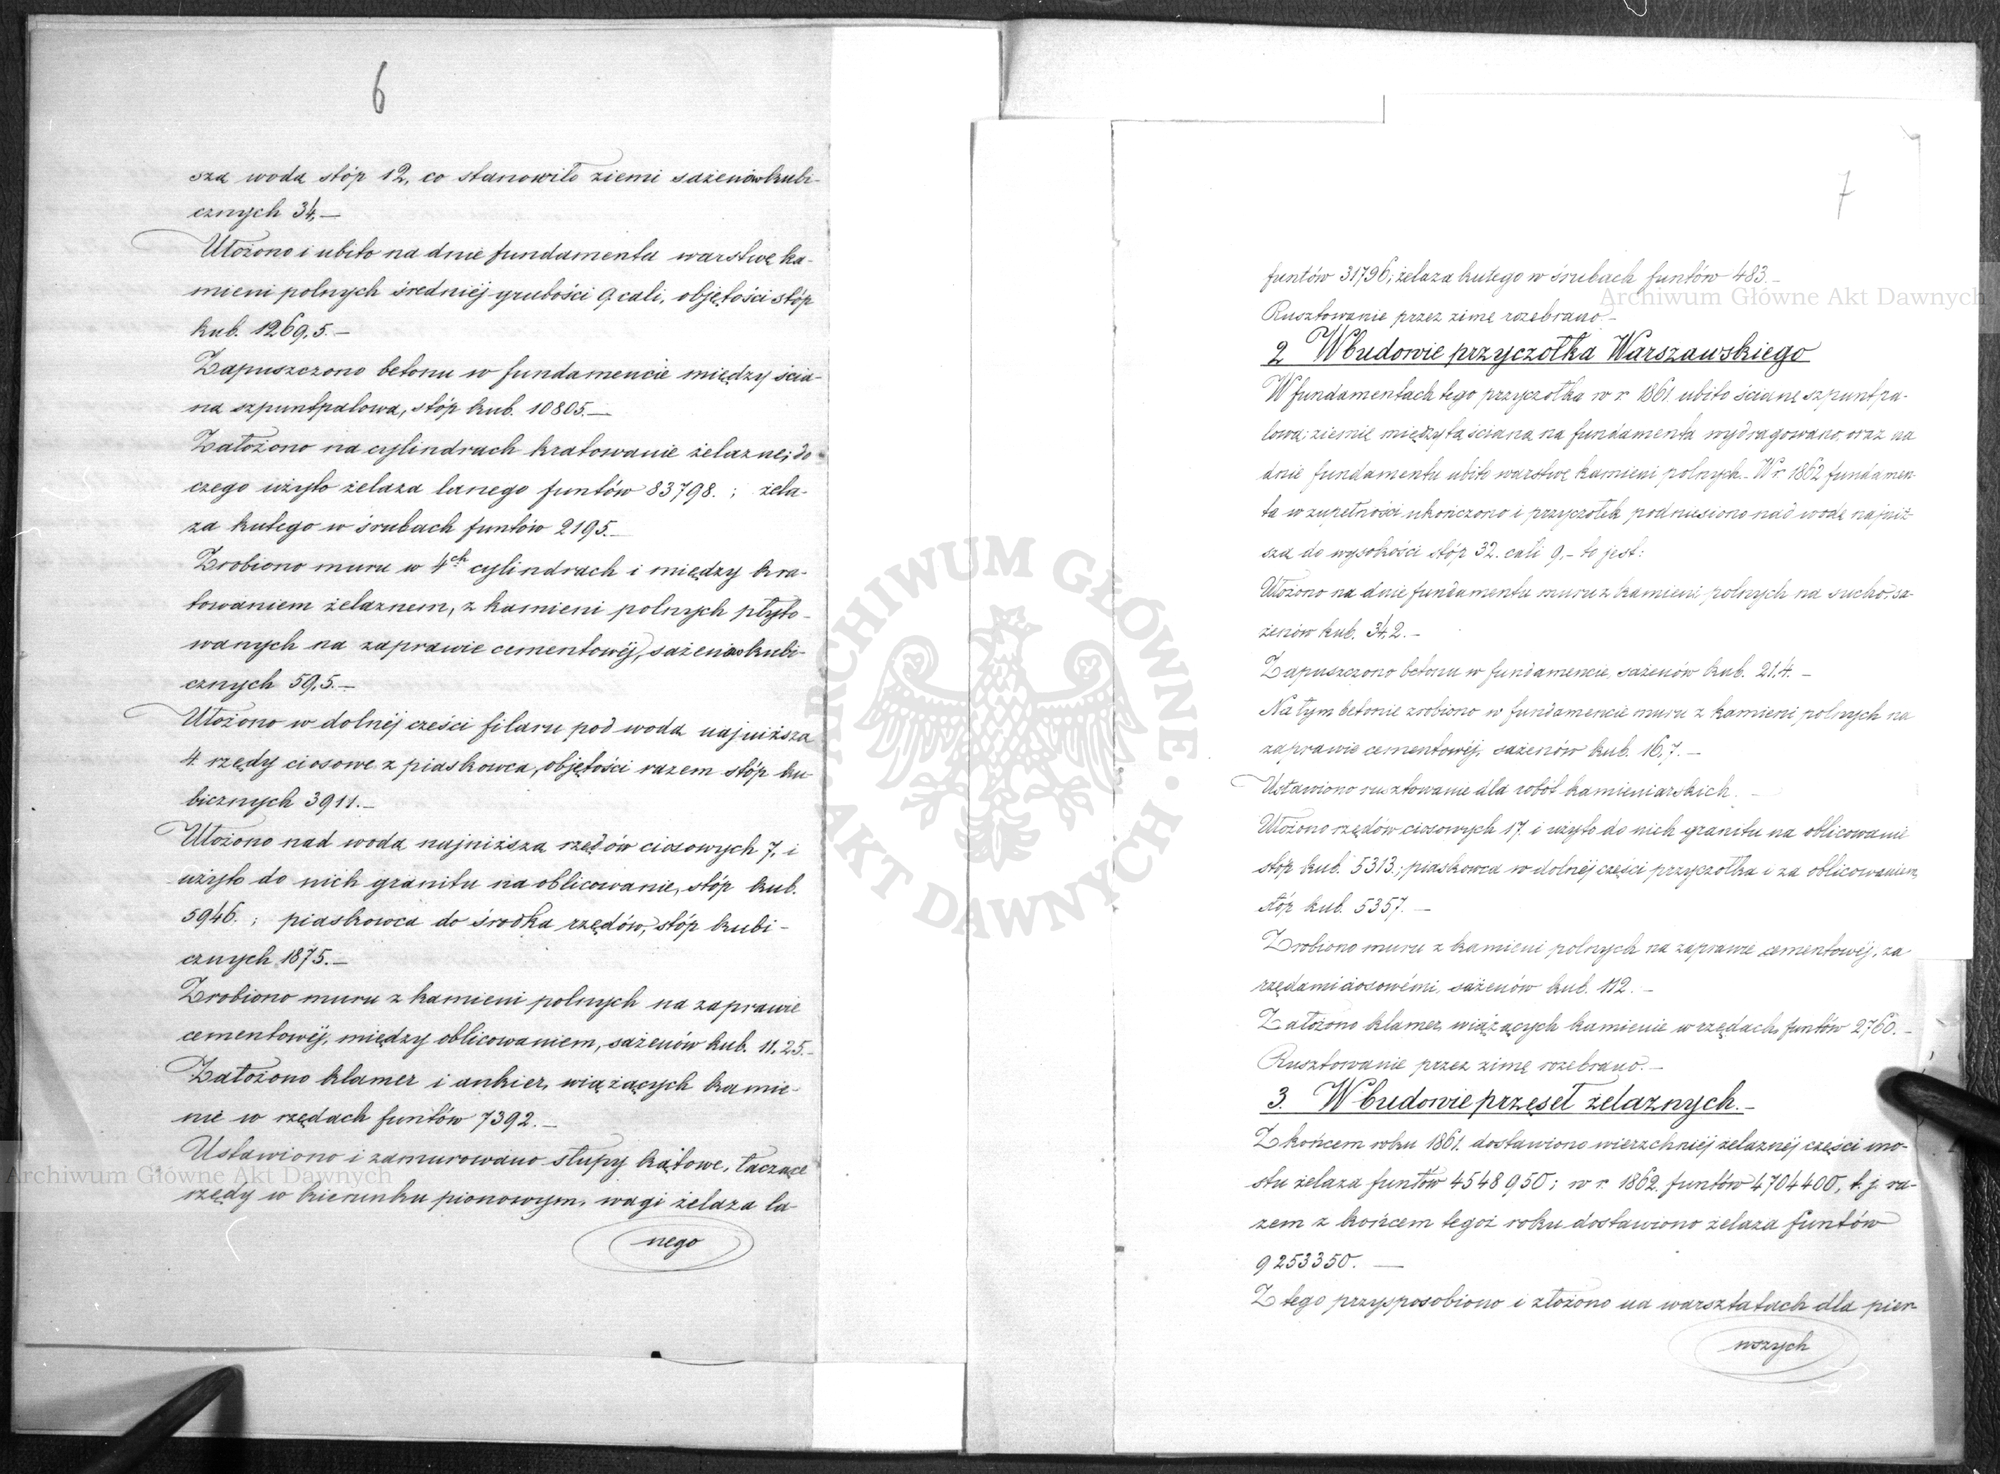 6
sza woda stóp 12, co stanowiło ziemi sażenów kubi-
cznych 34.—
Ułożono i ubito na dnie fundamentu warstwę ka-
mieni polnych średniej grubości 9. cali, objętości stóp
kub. 1269,5.—
Zapuszczono betonu w fundamencie między ścia-
na szpuntpalowa, stóp kub. 10805.—
Założono na cylindrach kratowanie żelazne; do
czego użyto żelaza lanego funtów 83798. ; żela-
za kutego w śrubach funtów 2195.—
Zrobiono muru w 4ch cylindrach i między kra-
towaniem żelaznem, z kamieni polnych płyto-
wanych na zaprawie cementowéj, sażenów kubi-
cznych 59,5.—
Ułożono w dolnéj części filaru pod woda najniższa
4. rzędy ciosowe z piaskowca, objętości razem stóp ku-
bicznych 3911.—
Ułożono nad woda najniższa rzędów ciosowych 7, i
użyto do nich granitu na oblicowanie, stóp kub.
5946. ; piaskowca do środka rzędów, stóp kubi-
cznych 1875.—
Zrobiono muru z kamieni polnych na zaprawie
cementowéj, między oblicowaniem, sażenów kub. 11,25.—
Założono klamer i ankier, wiążących kamie-
nie w rzędach funtów 7392.—
Ustawiono i zamurowano słupy kątowe, łączące
rzędy w kierunku pionowym, wagi żelaza la-
nego
7
funtów 31796; żelaza kutego w śrubach funtów 483.—
Rusztowanie przez zimę rozebrano.—
2 W budowie przyczółka Warszawskiego
W fundamentach tego przyczółka w r. 1861. ubito ścianę szpuntpa-
lową; ziemię między tą ściana na fundamenta wydragowano, oraz na
dnie fundamentu ubito warstwę kamieni polnych.— W r. 1862 fundamen-
ta w zupełności ukończono i przyczółek podniesiono nad wodę najniż-
sza do wysokości stóp 32. cali 9.— to jest:
Ułożono na dnie fundamentu muru z kamieni polnych na sucho, sa-
żenów kub. 34,2.—
Zapuszczono betonu w fundamencie, sażenów kub. 21.4. —
Na tym betonie zrobiono w fundamencie muru z kamieni polnych na
zaprawie cementowéj, sażenów kub. 16,7.—
Ustawiono rusztowanie dla robót kamieniarskich. —
Ułożono rzędów ciosowych 17. i użyto do nich granitu na oblicowanie
stóp kub. 5313.; piaskowca w dolnéj części przyczółka i za oblicowaniem,
stóp kub. 5357. —
Zrobiono muru z kamieni polnych na zaprawie cementowéj, za
rzędami ciosowémi, sażenów kub. 112. —
Założono klamer, wiążących kamienie w rzędach, funtów 2760.—
Rusztowanie przez zimę rozebrano.—
3. W budowie przęseł żelaznych.—
Z końcem roku 1861. dostawiono wierzchniéj żelaznéj części mo-
stu żelaza funtów 4548950; w r. 1862. funtów 4704400, t. j. ra-
zem z końcem tegoż roku dostawiono żelaza funtów
9253350. —
Z tego przysposobiono i złożono na warsztatach dla pier-
wszych
Archiwum Główne Akt Dawnych
Archiwum Główne Akt Dawnych
ARCHIWUM GŁÓWNE AKT DAWNYCH